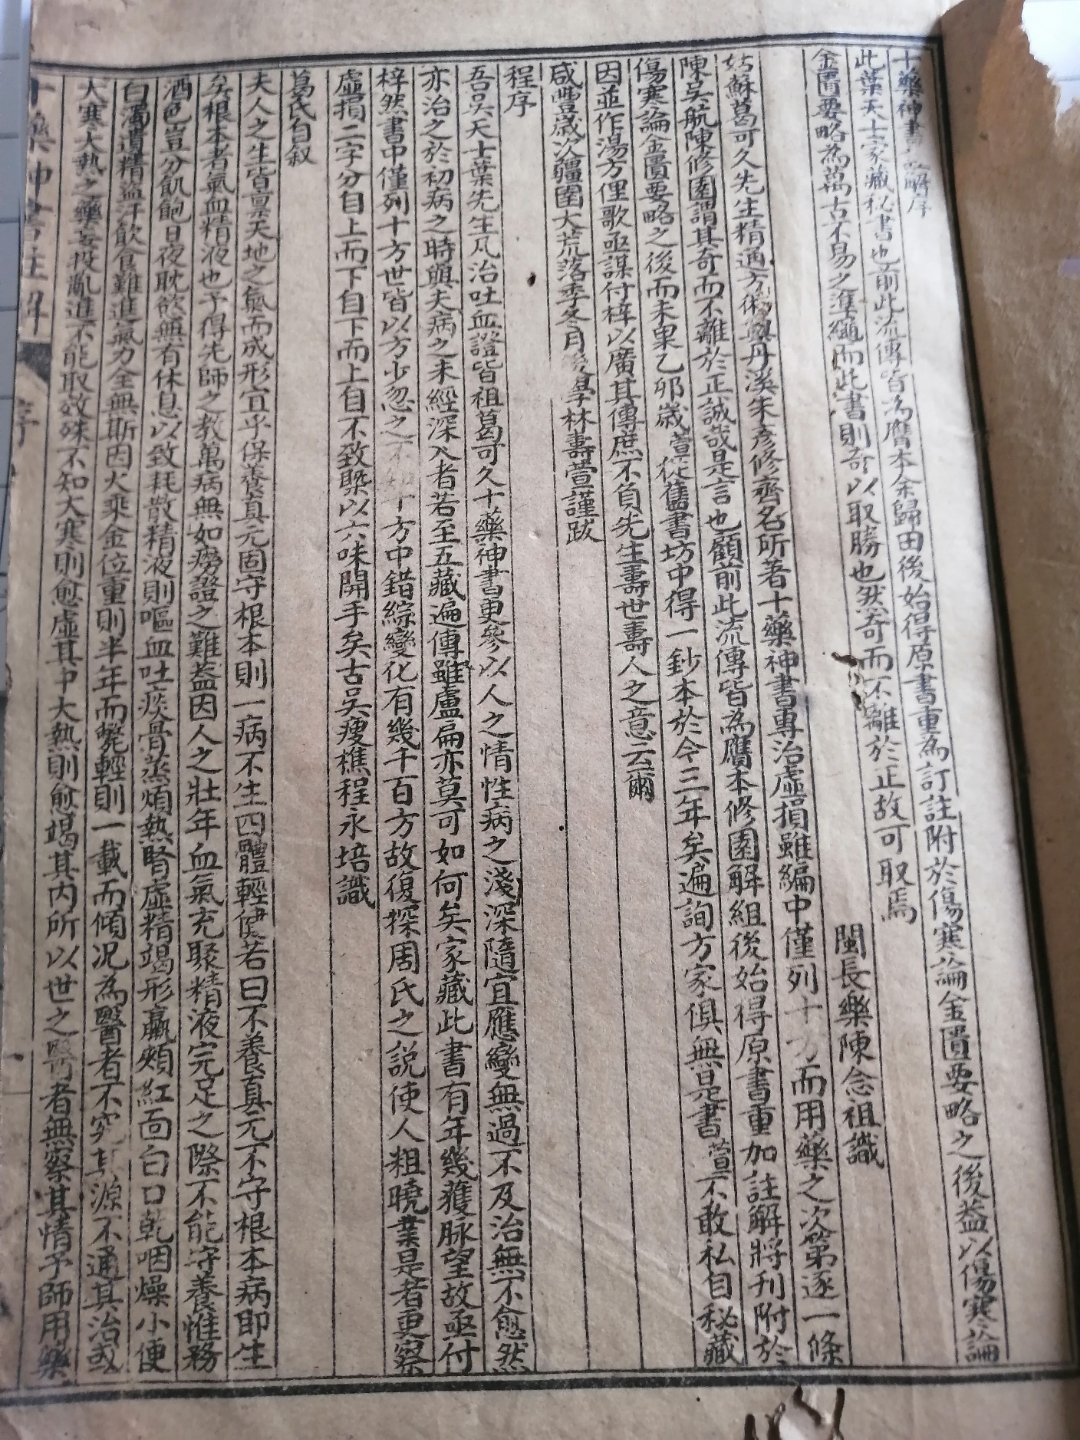 十藥神書註解序
此葉天士家藏秘書也前此流傳皆為贋本余歸田後始得原書重為訂註附於傷寒論金匱要略之後益以傷寒論
金匱要略為萬古不易之準繩而此書則奇以取勝也然奇而不離於正故可取焉
閩長樂陳念祖識
姑蘇葛可久先生精通方術與丹溪朱彥修齊名所著十藥神書專治虛損雖編中僅列十方而用藥之次第逐一條
陳吳航陳修園謂其奇而不離於正誠哉是言也顧前此流傳皆為贋本修園解組後始得原書重加註解將刊附於
傷寒論金匱要略之後而未果乙卯歲萱從舊書坊中得一鈔本於今三年矣遍詢方家俱無是書萱不敢私自秘藏
因並作湯方俚歌亟謀付梓以廣其傳庶不負先生壽世壽人之意云爾
咸豐歲次疆圉大荒落季冬月後學林壽萱謹跋
程序
吾吳天士葉先生凡治吐血證皆祖葛可久十藥神書更參以人之情性病之淺深隨宜應變無過不及治無不愈然
亦治之於初病之時與夫病之未經深入者若至五藏遍傳雖盧扁亦莫可如何矣家藏此書有年幾獲脉望故亟付
梓然書中僅列十方世皆以方少忽之不知十方中錯綜變化有幾千百方故復採周氏之說使人粗曉業是者更察
虛損二字分自上而下自下而上自不致槩以六味開手矣古吳瘦樵程永培識
葛氏自叙
夫人之生皆稟天地之氣而成形宜乎保養真元固守根本則一病不生四體輕健若曰不養真元不守根本病即生
矣根本者氣血精液也予得先師之教萬病無如癆證之難蓋因人之壯年血氣充聚精液完足之際不能守養惟務
酒色豈分飢飽日夜耽慾無有休息以致耗散精液則嘔血吐痰骨蒸煩熱腎虛精竭形羸頰紅面白口乾咽燥小便
白濁遺精盜汗飲食難進氣力全無斯因火乘金位重則半年而斃輕則一載而傾况為醫者不究其源不通其治或
大寒大熱之藥妄投亂進不能取效殊不知大寒則愈虛其中大熱則愈竭其內所以世之醫者無察其情予師用藥
十藥神書註解
序